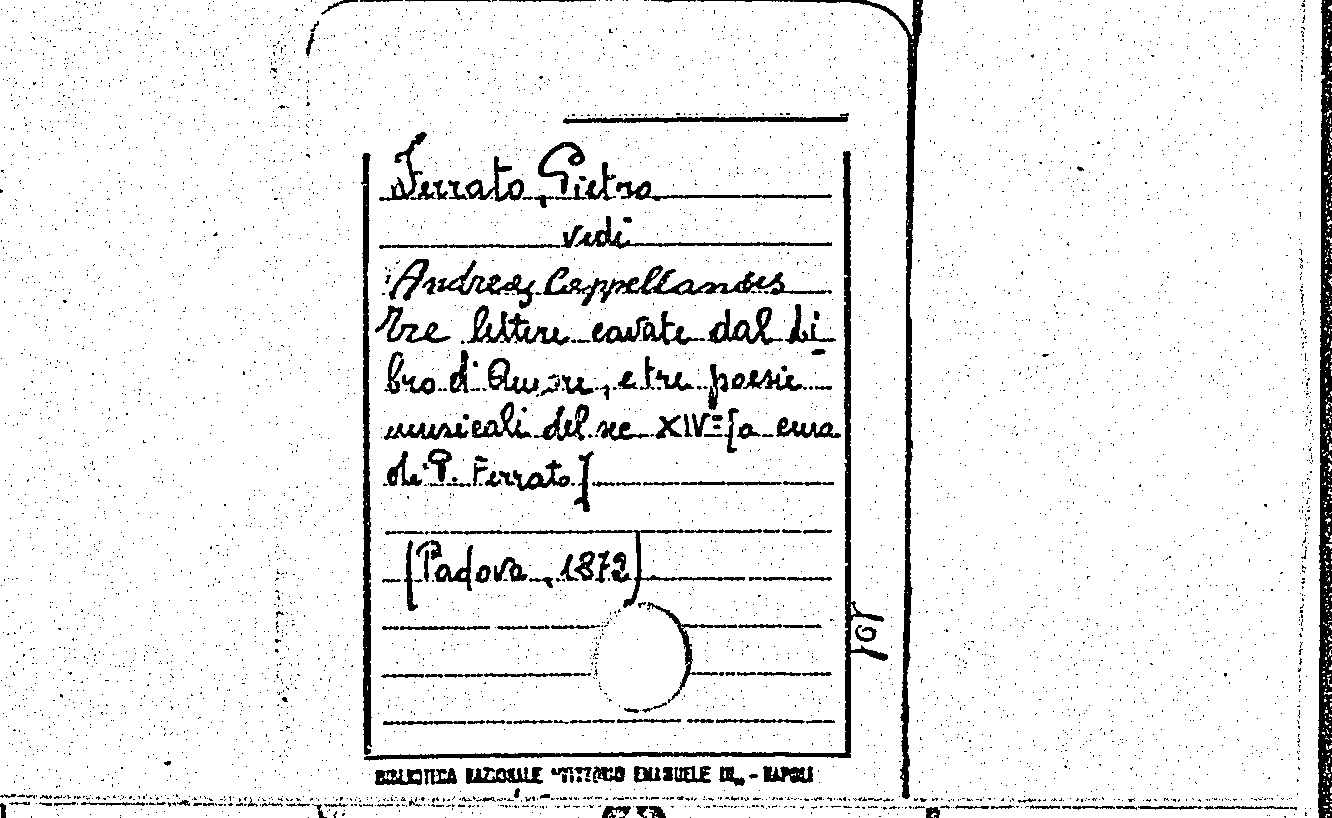 Ferrato, Pietro
vedi
Andreas Cappellanus
Tre lettere cavate dal li-
bro d'Amore, e tre poesie
musicali del sec XIVº [a cura
di P. Ferrato]
(Padova, 1872)
BIBLIOTECA NAZIONALE "VITTORIO EMANUELE III" - NAPOLI